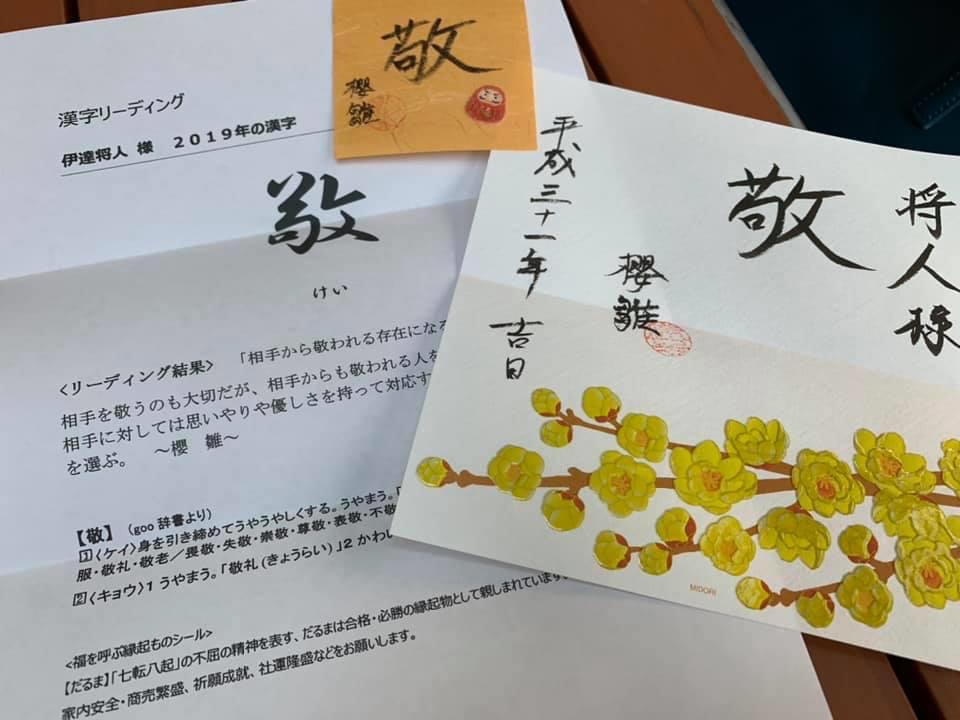 漢字リーディング
伊達将人 様 2019年の漢字
敬
けい
<リーディング結果> 「相手から敬われる存在になる
相手を敬うのも大切だが、相手からも敬われる人を
相手に対しては思いやりや優しさを持って対応す
を選ぶ。 ~櫻 雛~
【敬】 (goo辞書より)
1〈ケイ〉身を引き締めてうやうやしくする。うやまう。「
服・敬礼・敬老/畏敬・失敬・崇敬・尊敬・表敬・不敬
2〈キョウ〉1 うやまう。「敬礼(きょうらい)」2 かわい
<福を呼ぶ縁起ものシール>
【だるま】「七転八起」の不屈の精神を表す、だるまは合格・必勝の縁起物として親しまれています
家内安全・商売繁盛、祈願成就、社運隆盛などをお願いします。
敬
櫻雛
将人様
敬
櫻雛
平成三十一年 吉日
MIDORI